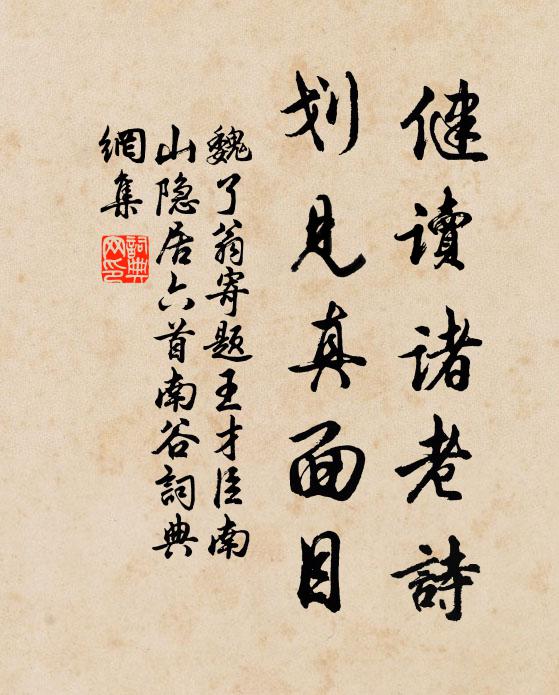 健讀諸老詩
划見真面目
魏了翁寄題王才臣南
山隐居六首南谷詞典
網集
詞典
网印